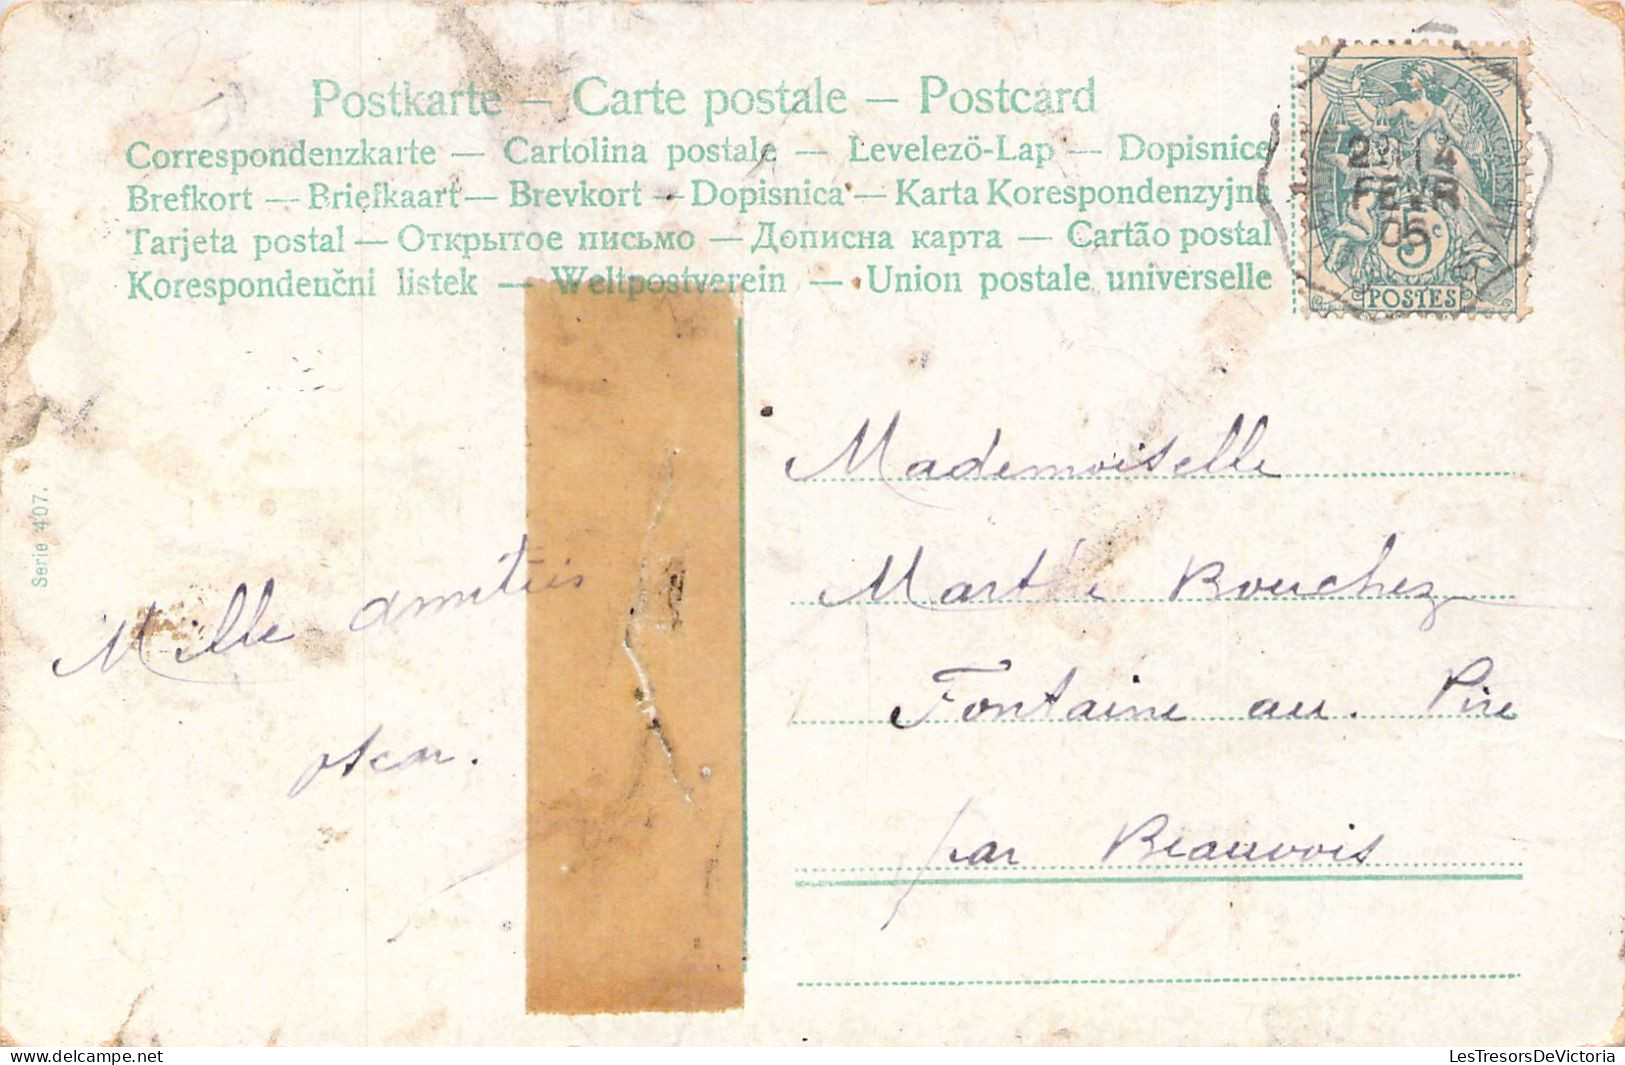 Postkarte – Carte postale – Postcard
Correspondenzkarte — Cartolina postale — Levelezö-Lap — Dopisnice
Brefkort — Briefkaart — Brevkort — Dopisnica — Karta Korespondenzyjna
Tarjeta postal — Открытое письмо — Дописна карта — Cartão postal
Korespondenční listek — Weltpostverein — Union postale universelle
FEVR
05
5c
POSTES
Serie 407.
Mille amitiés
Oscar.
Mademoiselle
Marthe Bouchez
Fontaine au. Pire
par Beauvois
LesTresorsDeVictoria